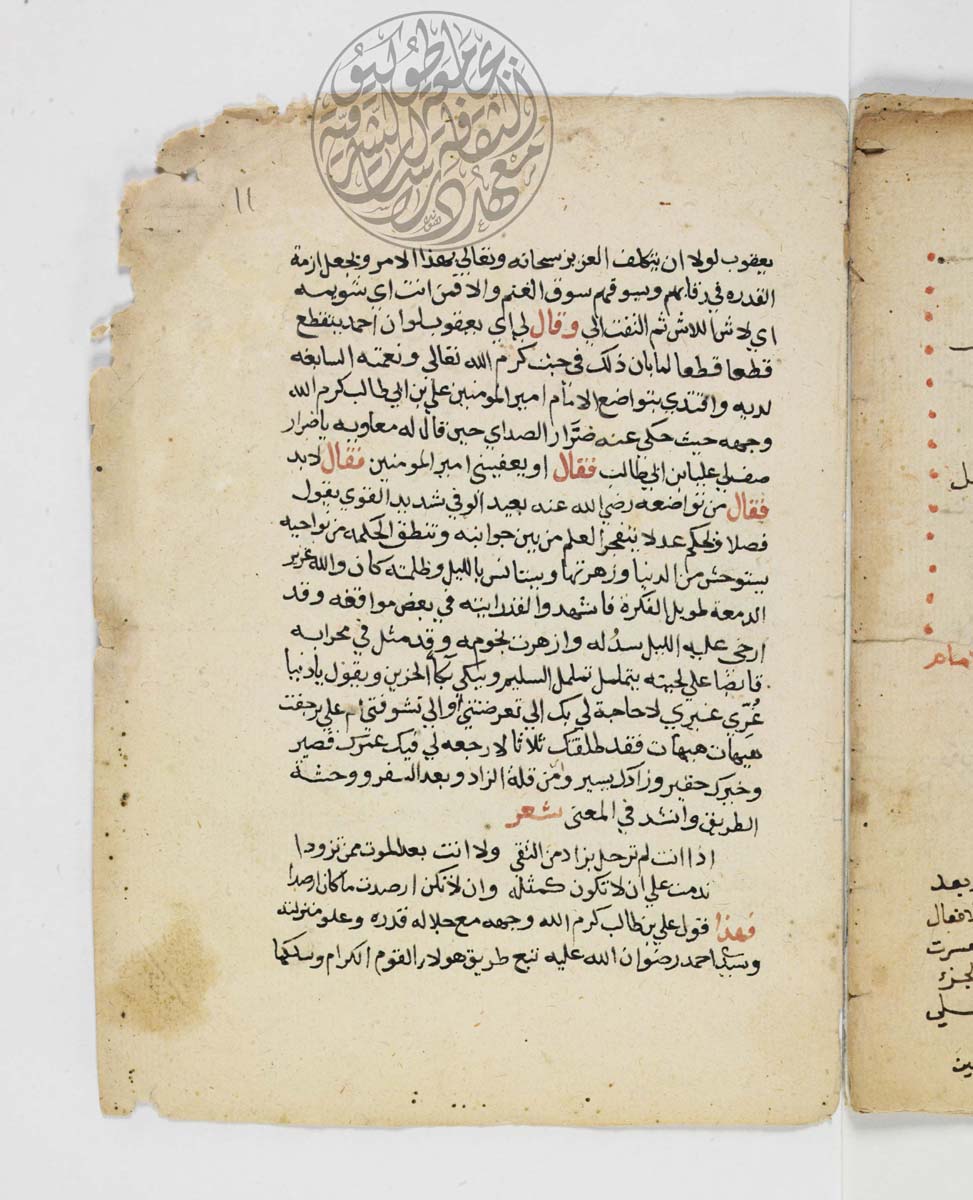 ١١
يعقوب لولا ان يتكلف العزيز سبحانه وتعالى بهذا الامر ويجعل ازمة
القدره في رقابهم ويسوقهم سوق الغنم والا فمن انت اي شويمه
اي لاش اللاش ثم التفت الي وقال لي اي يعقوب لو ان احمد يتقطع
قطعا قطعا لما بان ذلك في جنب كرم الله تعالى ونعمته السابغه
لديه واقتدي بتواضع الامام امير المومنين علي بن ابي طالب كرم الله
وجهه حيث حكى عنه ضرار الصداي حين قال له معاويه يا ضرار
صف لي عليا بن ابي طالب فقال او يعفيني امير المومنين فقال لا بد
فقال من تواضعه رضي الله عنه بعيد الوفي شديد القوي يقول
فصلا ويحكم عدلا ينفجر العلم من بين جوانبه وتنطق الحكمه من نواحيه
يستوحش من الدنيا وزهرتها ويستانس بالليل وظلمته كان والله غزير
الدمعة طويل الفكرة فاشهد والله لقد رايته في بعض مواقفه وقد
ارخى عليه الليل سدله وازهرت نجومه وقد مثل في محرابه
قابضا على لحيته يتململ تململ السليم ويبكي بكا الحزين ويقول يا دنيا
غُرّي غيري لا حاجة لي بك الي تعرضتي او الي تشوفتي ام علي رجفت
هيهات هيهات فقد طلقتك ثلاثا لا رجعه لي فيك عمرك قصير
وخيرك حقير وزادك يسير وامن قلة الزاد وبعد السفر ووحشة
الطريق وانشد في المعنى شعر
اذا انت لم ترحل بزاد من التقى ولا انت بعد الموت ممن تزودا
ندمت علي ان لا تكون كمثله وان لا تكن ارصدت ما كان ارصدا
فهذا قول علي بن طالب كرم الله وجهه مع جلاله قدره وعلو منزلته
وسيدي احمد رضوان الله عليه تبع طريق هولاء القوم الكرام وسلكها